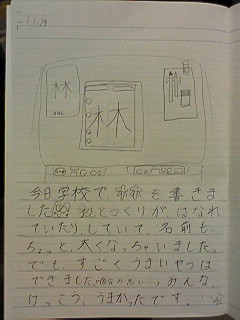 11 29
林
林
今日学校で、を書きま
した とつくりが、はなれ
ていたり、していて、名前も、
ちょっと、太くなっちゃいました。
でも、すごくうまいやつは
できました。みんな
けっこう、うまかったです。・・・